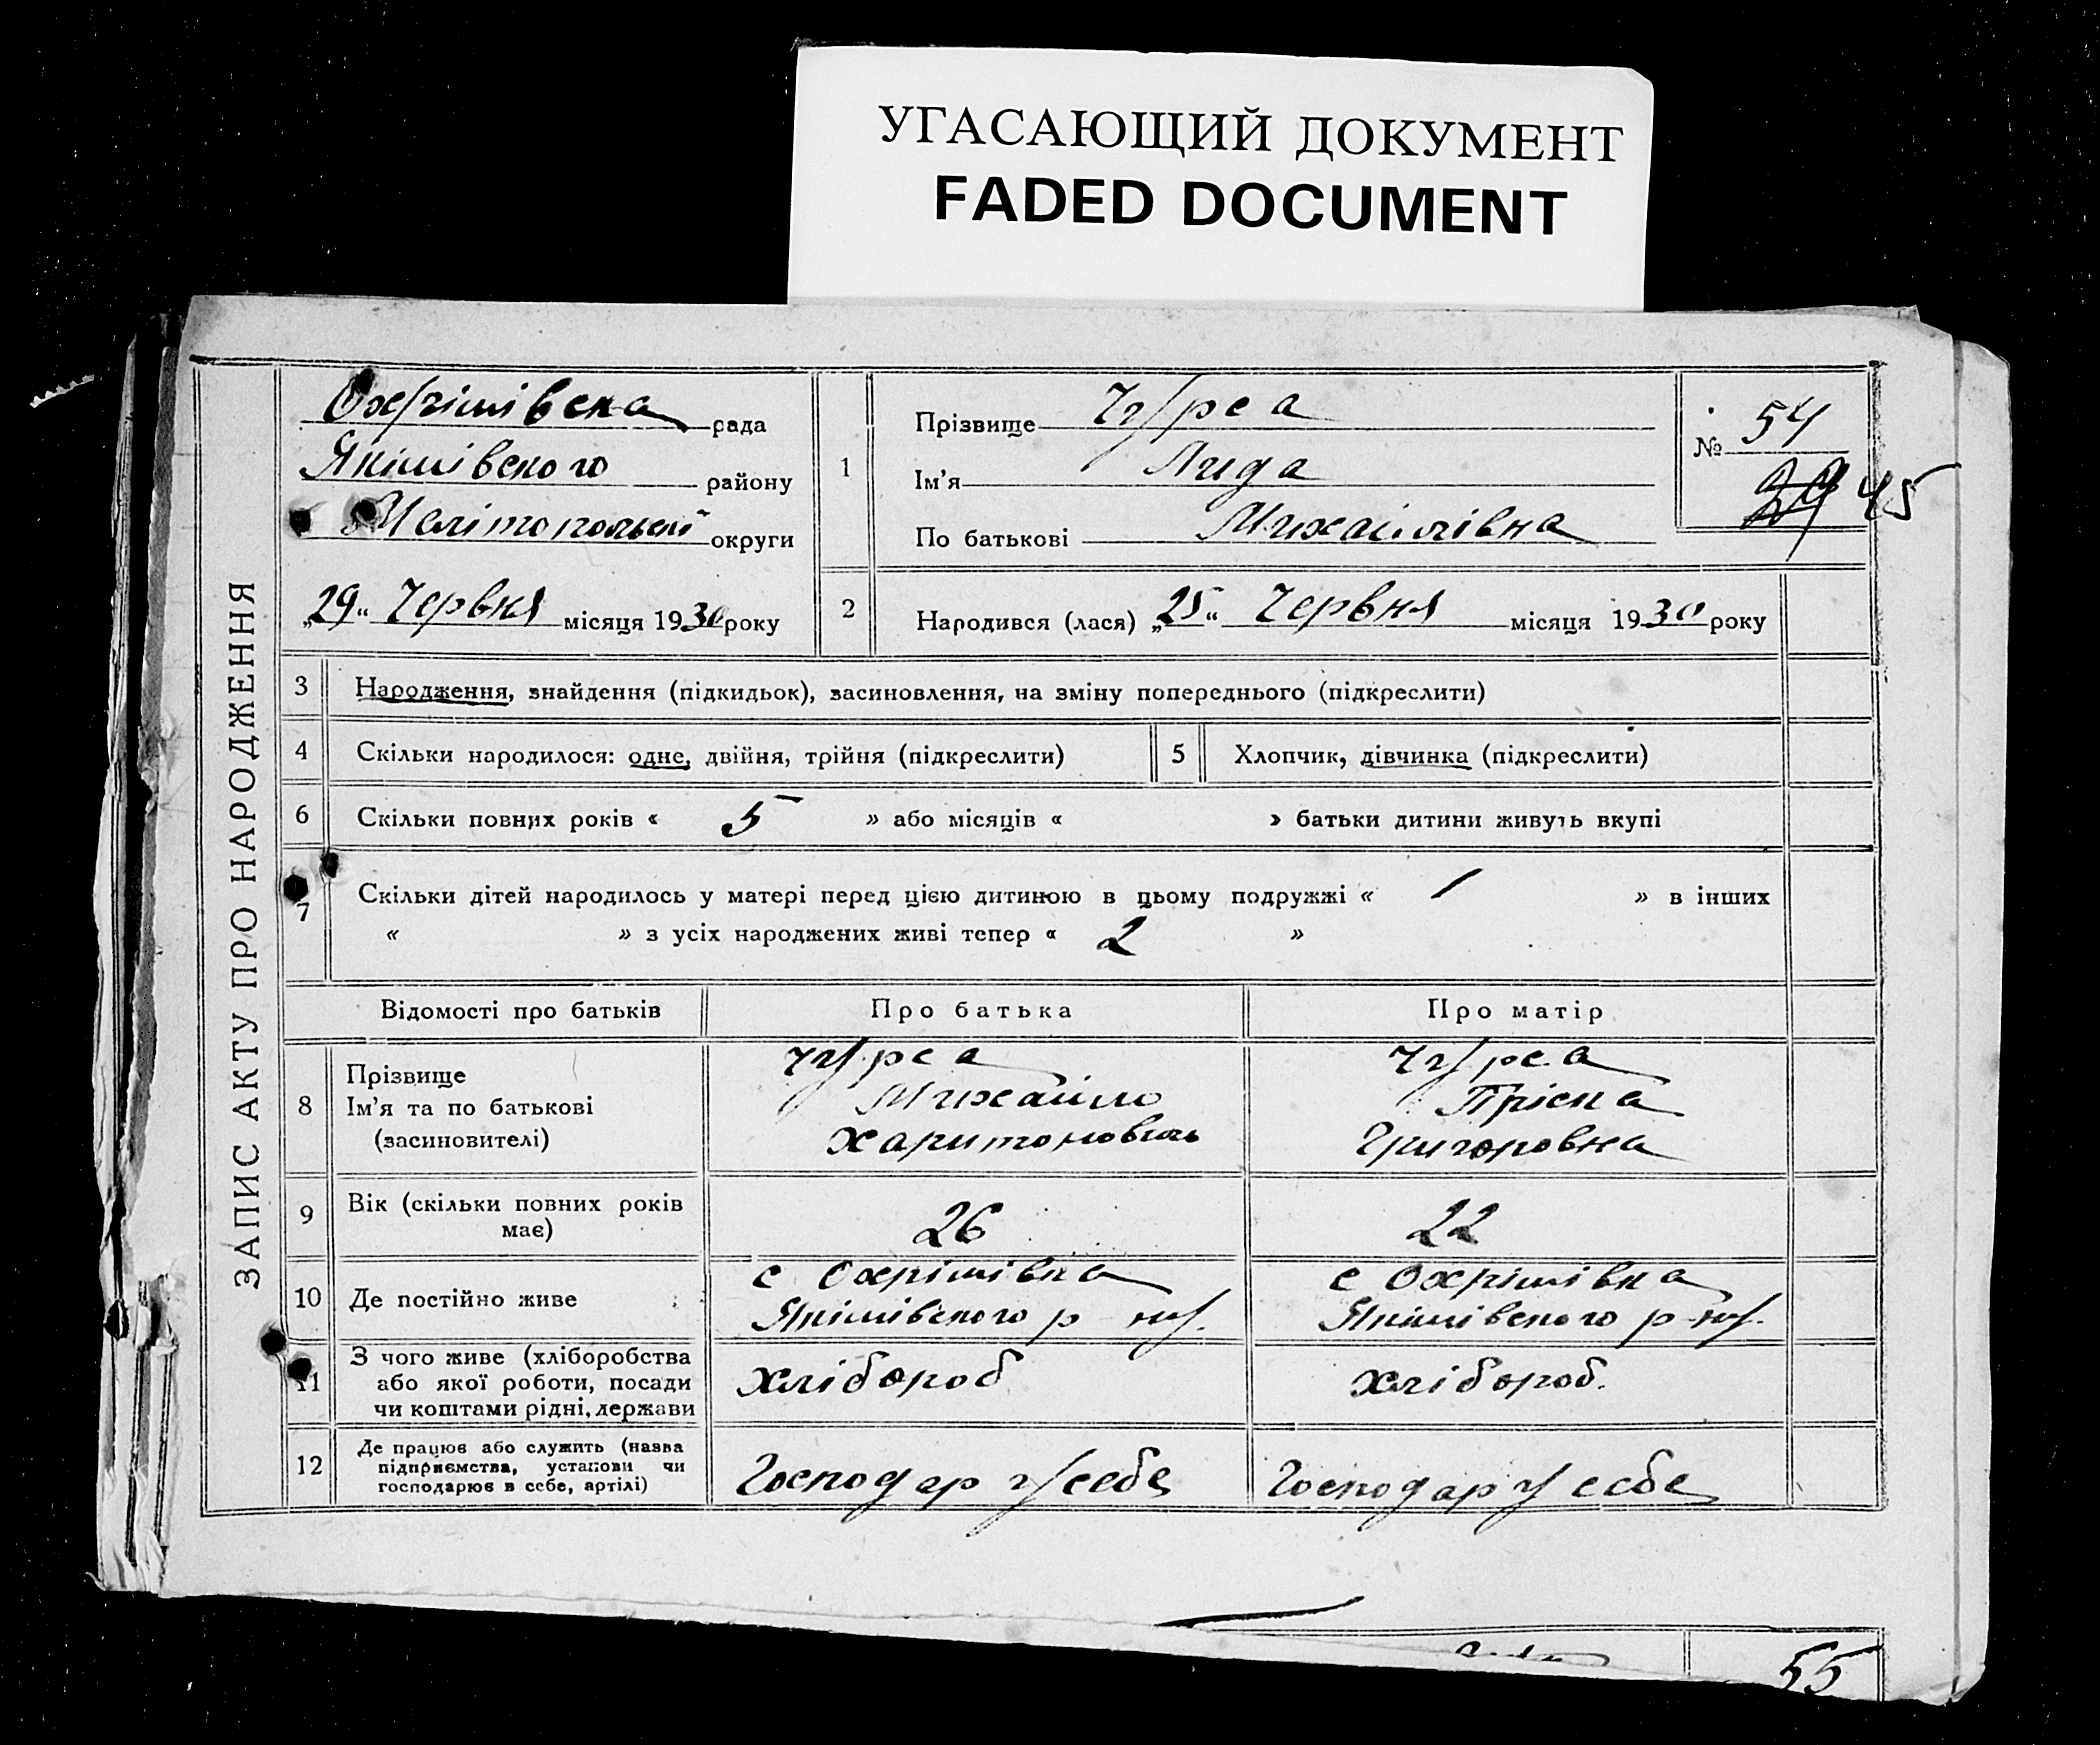 УГАСАЮЩИЙ ДОКУМЕНТ
FADED DOCUMENT
ЗАПИС АКТУ ПРО НАРОДЖЕННЯ
Охрімівска рада
Якімівского району
Мелітопольскої округи
„29“ Червня місяця 1930 року
1
Прізвище Чурса
Ім’я Лида
По батькові Михайлівна
№ 54
29 45
2 Народився (лася) „25“ Червня місяця 1930 року
3 Народження, знайдення (підкидьок), засиновлення, на зміну попереднього (підкреслити)
4 Скільки народилося: одне, двійня, трійня (підкреслити) 5 Хлопчик, дівчинка (підкреслити)
6 Скільки повних років « 5 » або місяців « » батьки дитини живуть вкупі
7 Скільки дітей народилось у матері перед цією дитиною в цьому подружжі « 1 » в інших
« » з усіх народжених живі тепер « 2 »
Відомості про батьків Про батька Про матір
8 Прізвище
Ім’я та по батькові
(засиновителі)
Чурса
Михайло
Харитонович
Чурса
Григоровна
9 Вік (скільки повних років
має)
26 22
10 Де постійно живе
с Охрімівка
Якімівского р-ну.
с Охрімівка
Якімівского р-ну.
11 З чого живе (хліборобства
або якої роботи, посади
чи коштами рідні, держави
хлібороб хлібороб.
12 Де працює або служить (назва
підприємства, установи чи
господарює в себе, артілі)
Господар у себе Господар у себе
55